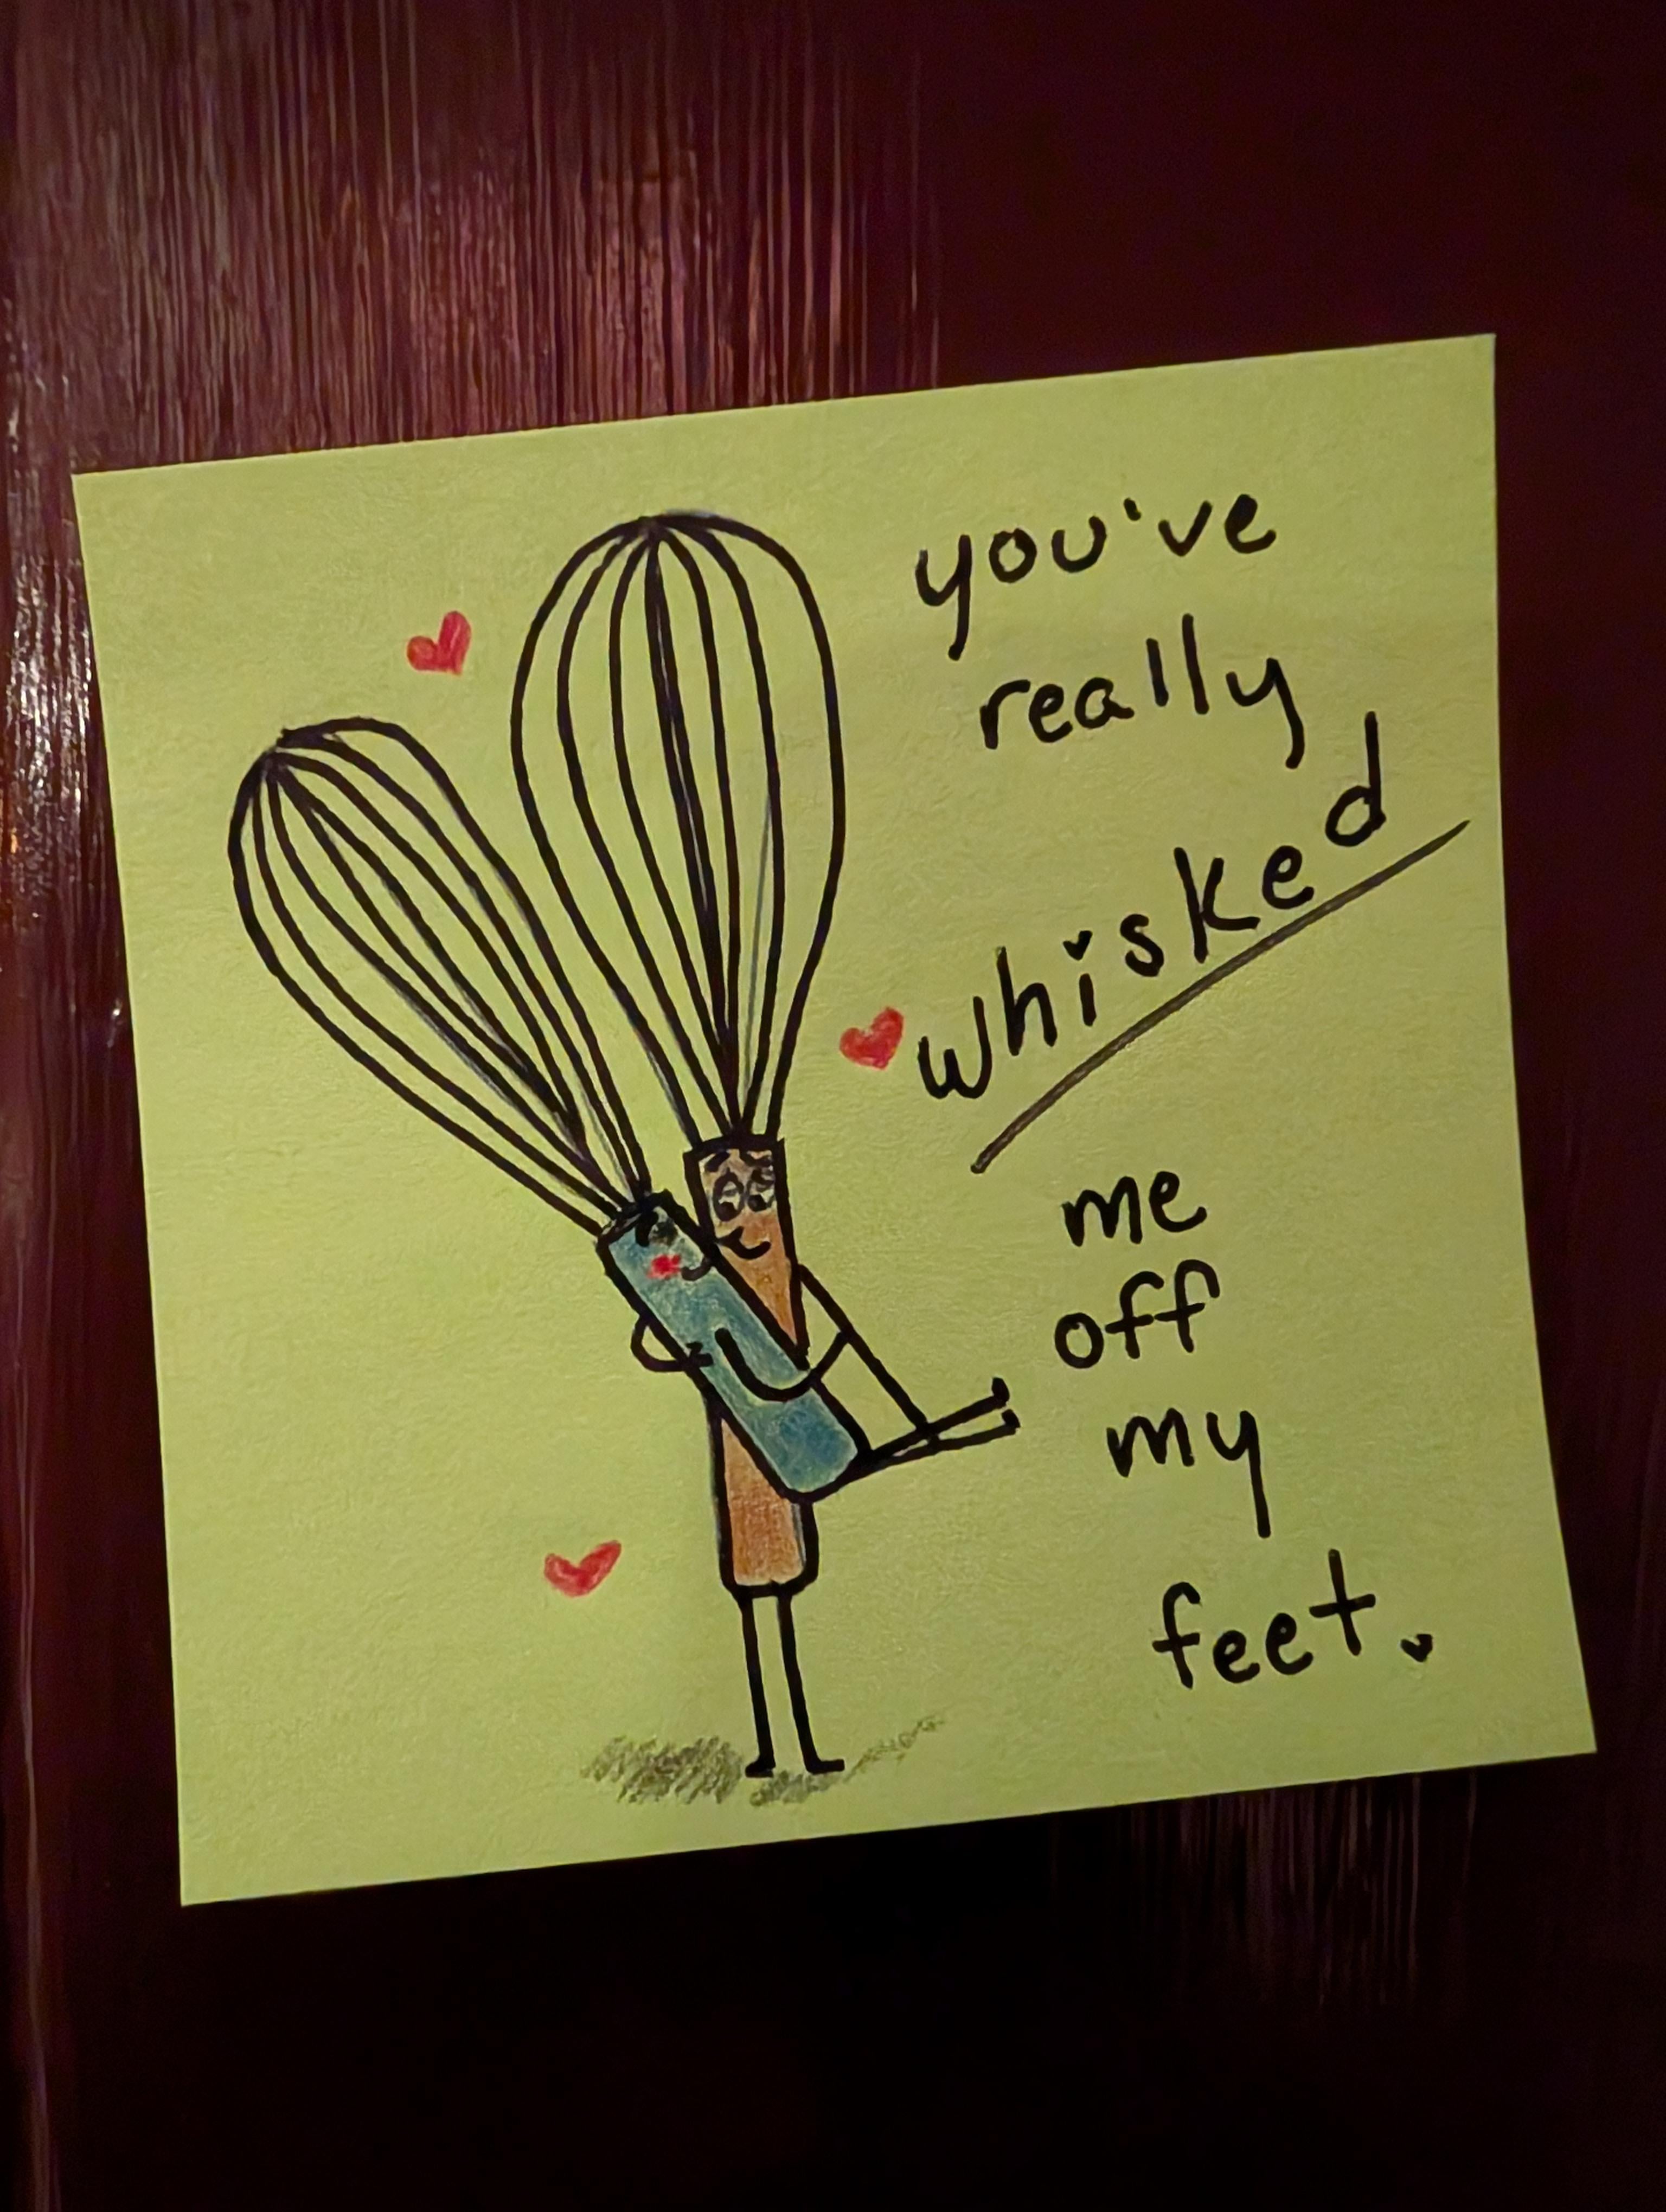 you've
really
whisked
me
off
my
feet.